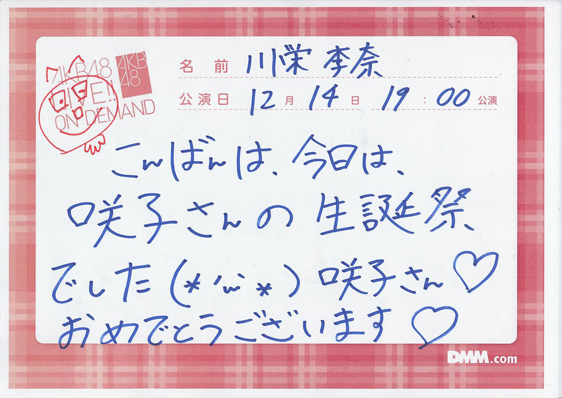 AKB48
LIVE!!
ON DEMAND
AKB
48
名前 川栄 李奈
公演日 12月 14日 19:00 公演
こんばんは、今日は、
咲子さんの生誕祭
でした(*´ω`*) 咲子さん♡
おめでとうございます♡
DMM.com